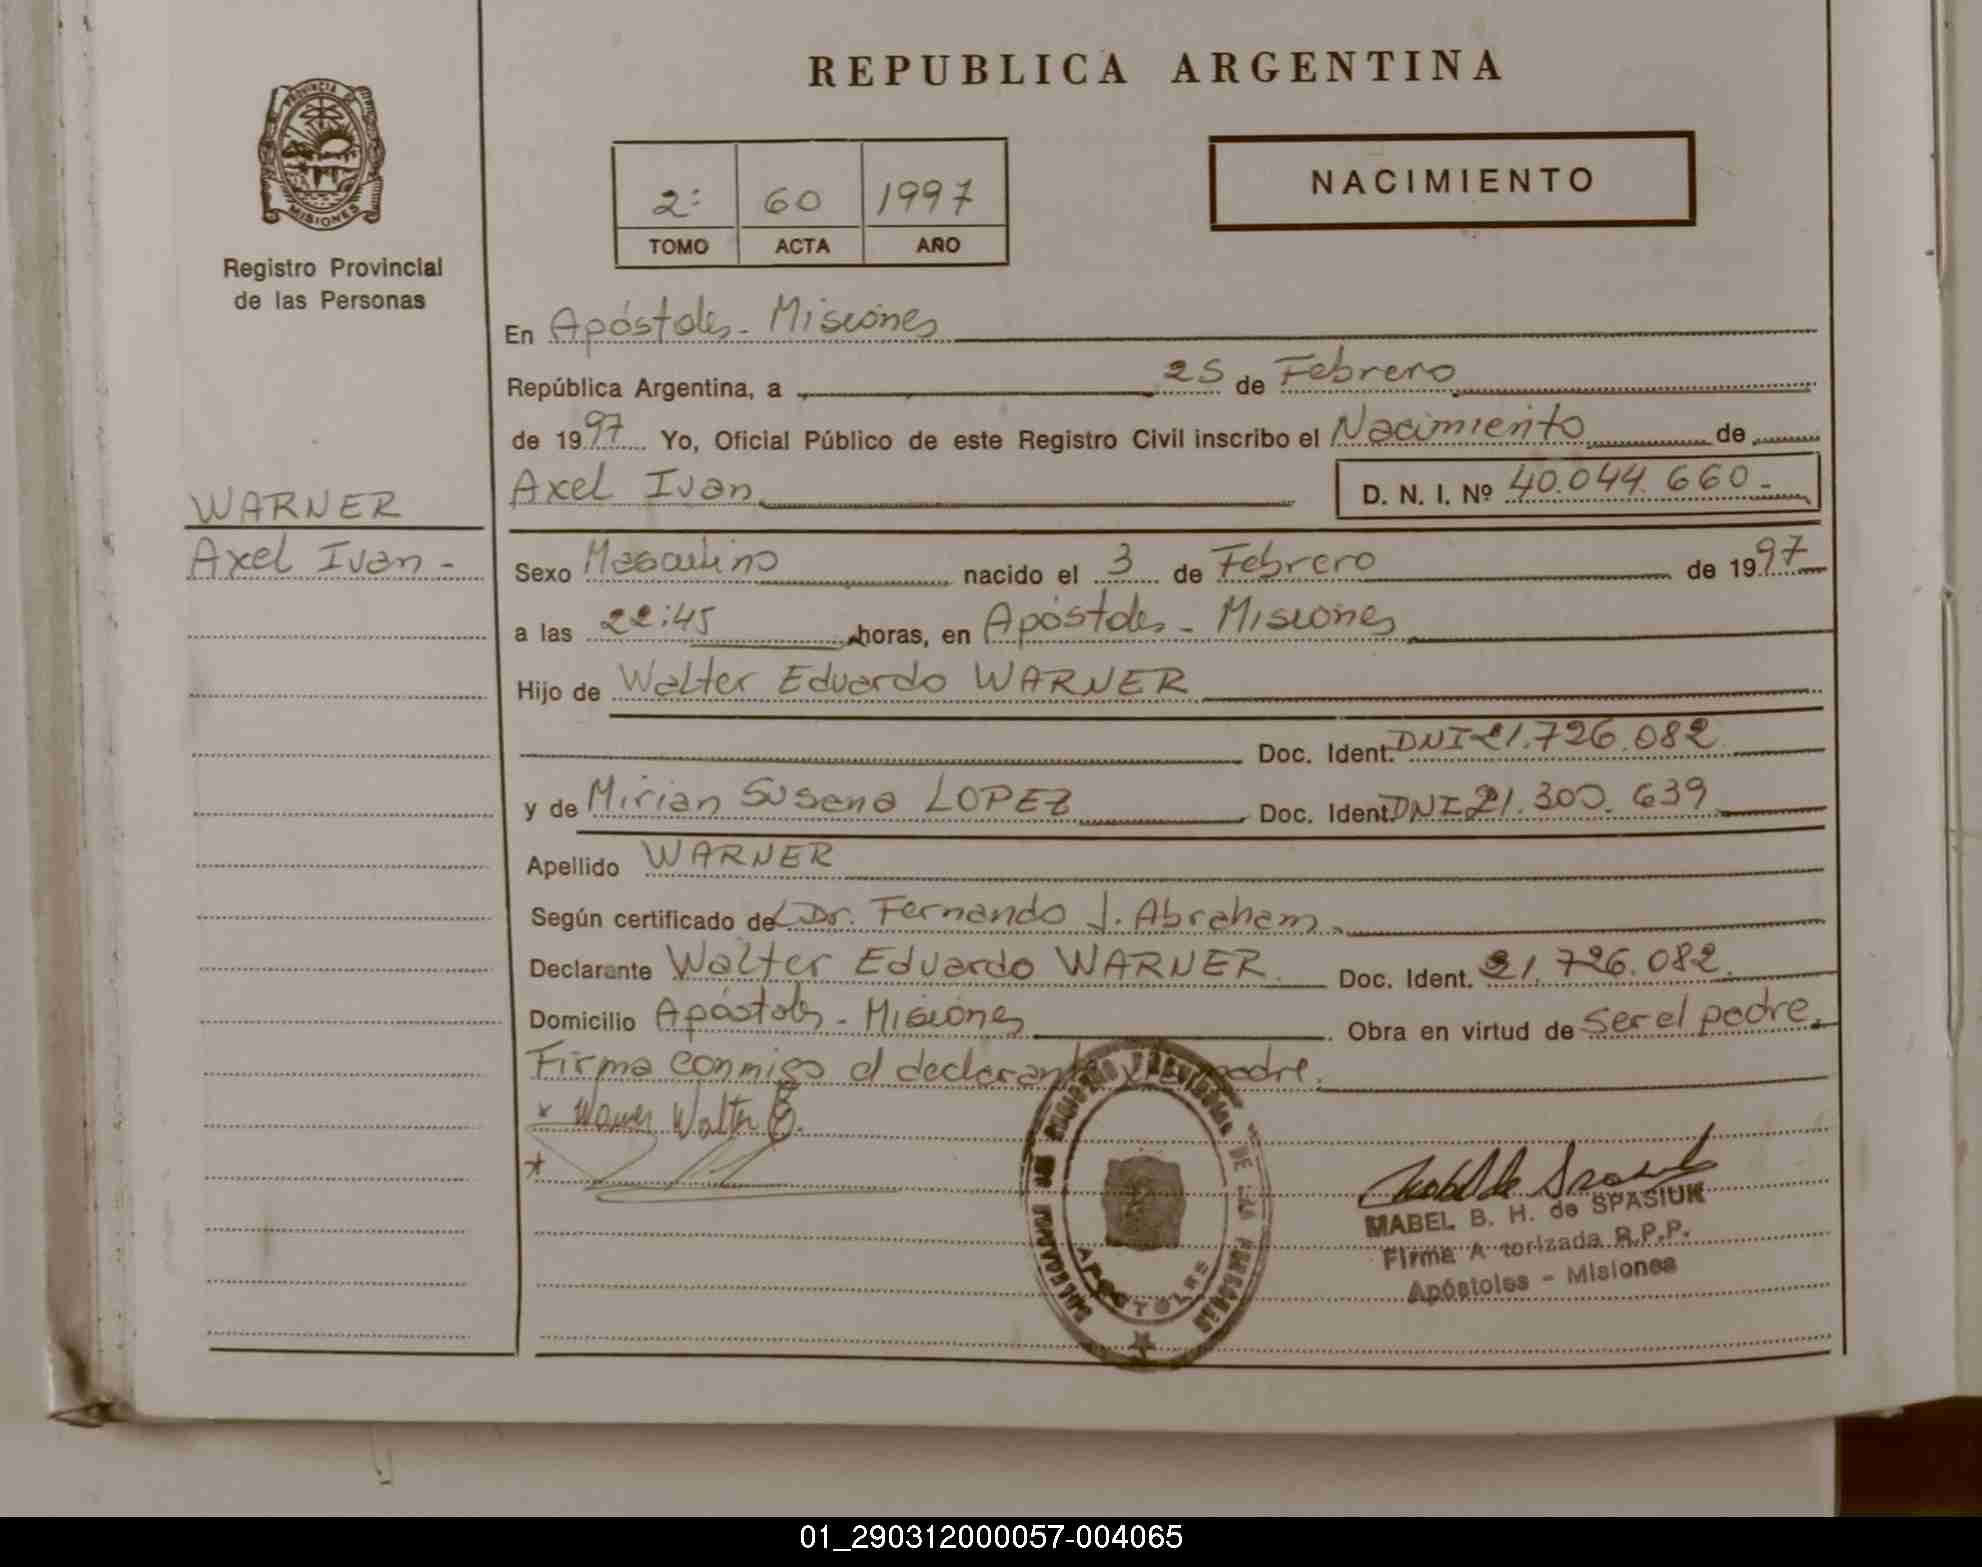 REPUBLICA ARGENTINA
PROVINCIA DE
MISIONES
Registro Provincial
de las Personas
2: 60 1997
TOMO ACTA AÑO
NACIMIENTO
En Apóstoles - Misiones
República Argentina, a 25 de Febrero
de 1997 Yo, Oficial Público de este Registro Civil inscribo el Nacimiento de
WARNER
Axel Ivan -
Axel Ivan D. N. I. Nº 40.044.660.-
Sexo Masculino nacido el 3 de Febrero de 1997
a las 22:45 horas, en Apóstoles - Misiones
Hijo de Walter Eduardo WARNER
Doc. Ident. DNI 21.726.082
y de Mirian Susana LOPEZ Doc. Ident. DNI 21.300.639
Apellido WARNER
Según certificado de Dr. Fernando J. Abraham.
Declarante Walter Eduardo WARNER. Doc. Ident. 21.726.082.
Domicilio Apóstoles - Misiones. Obra en virtud de ser el padre.
Firma conmigo el declarante y padre.
x Warner Walter E.
x
REGISTRO PROVINCIAL DE LAS PERSONAS
APOSTOLES
MABEL B. H. de SPASIUK
Firma A torizada R.P.P.
Apóstoles - Misiones
01_290312000057-004065